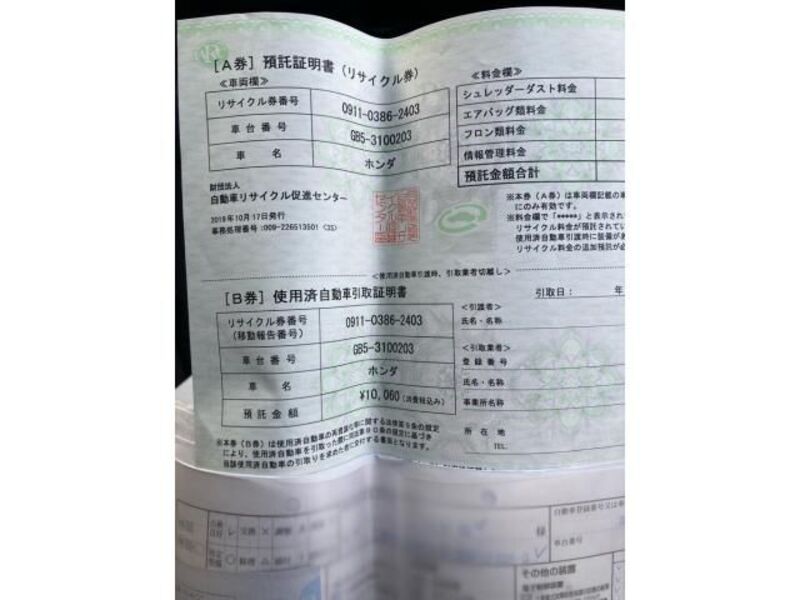 [A券] 預託証明書 (リサイクル券)
≪車両欄≫
リサイクル券番号 0911-0386-2403
車台番号 GB5-3100203
車名 ホンダ
≪料金欄≫
シュレッダーダスト料金
エアバッグ類料金
フロン類料金
情報管理料金
預託金額合計
財団法人
自動車リサイクル促進センター
2019年10月17日発行
事務処理番号:009-226513501
※本券(A券)は車両欄記載の
にのみ有効です。
※料金欄で「*****」と表示され
リサイクル料金が預託されてい
使用済自動車引渡時に装備があ
リサイクル料金の追加預託が必
<使用済自動車引渡時、引取業者切離し>
[B券] 使用済自動車引取証明書
リサイクル券番号
(移動報告番号) 0911-0386-2403
車台番号 GB5-3100203
車名 ホンダ
預託金額 ¥10,060(消費税込み)
引取日: 年
<引渡者>
氏名・名称
<引取業者>
登録番号
氏名・名称
事業所名称
所在地
TEL
※本券(B券)は使用済自動車の再資源化等に関する法律第9条の規定
により、使用済自動車を引取った際に同法第80条の規定に基づき
当該使用済自動車の引取りを求めた者に交付する書面となります。
様
自動車登録番号又は車
車台番号
その他の装置